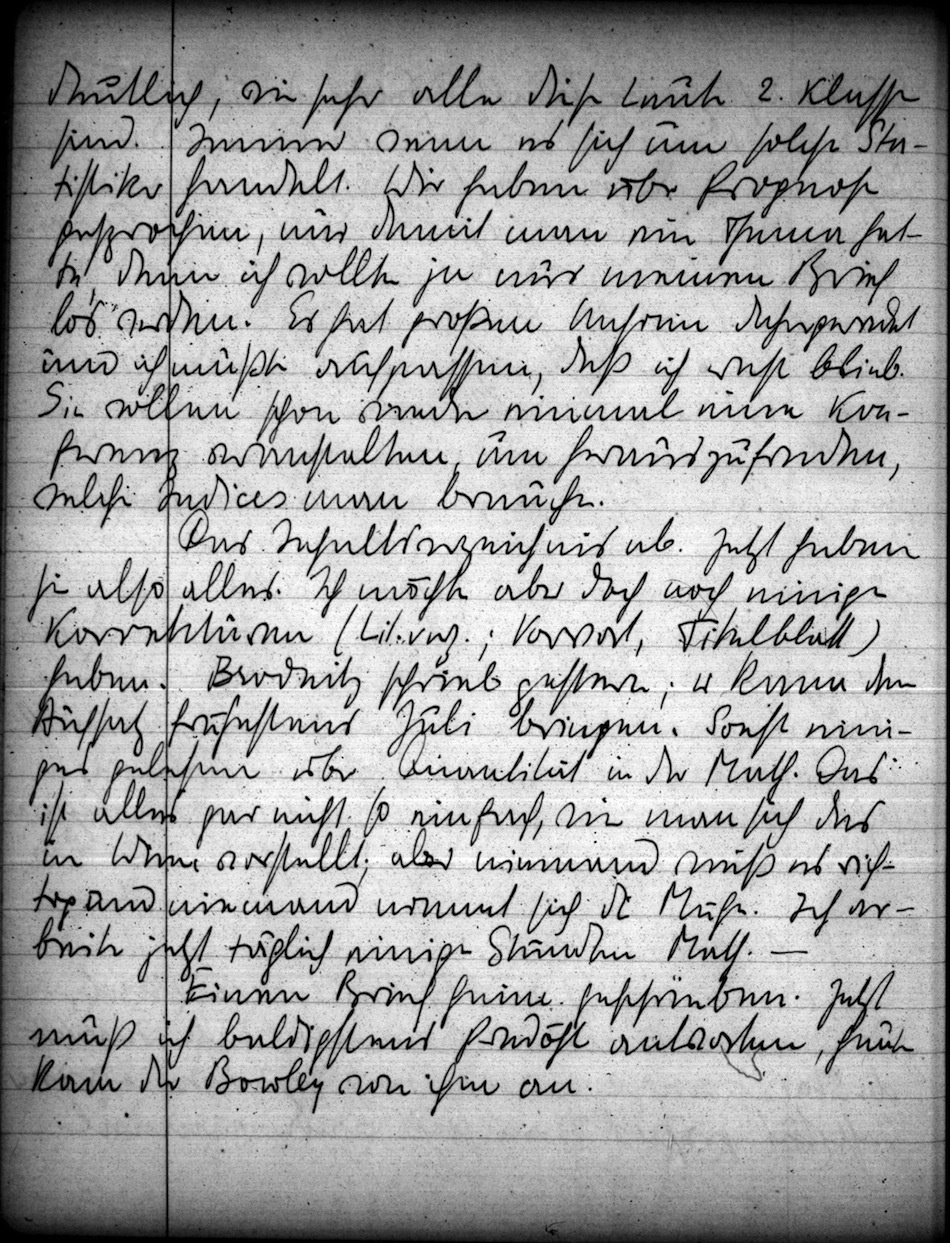 deutlich, wie sehr alle diese Leute 2. Klasse
sind. Immer wenn es sich um solche Sta-
tistiker handelt. Wir haben über Prognose
gesprochen, nur damit man ein Thema hat-
te, denn ich wollte ja nur meinen Brief
los werden. Er hat großen Unsinn dahergeredet
und ich mußte aufpassen, daß ich ernst blieb.
Sie wollen schon wieder einmal eine Kon-
ferenz veranstalten, um herauszufinden,
welche Indices man brauche.
Das Inhaltsverzeichnis ab. Jetzt haben
sie also alles. Ich möchte aber doch noch einige
Korrekturen (Lit.verz.; Vorwort, Titelblatt)
haben. Brodnitz schrieb gestern; er kann den
Aufsatz frühestens Juli bringen. Sonst eini-
ges gelesen über Quantität in der Math. Das
ist alles gar nicht so einfach, wie man sich das
in Wien vorstellt; aber niemand weiß es rich-
tig und niemand nimmt sich die Mühe. Ich ar-
beite jetzt täglich einige Stunden Math. —
Einen Brief heim geschrieben. Jetzt
muß ich baldigstens antworten, heute
kam der Bowley von ihm an.